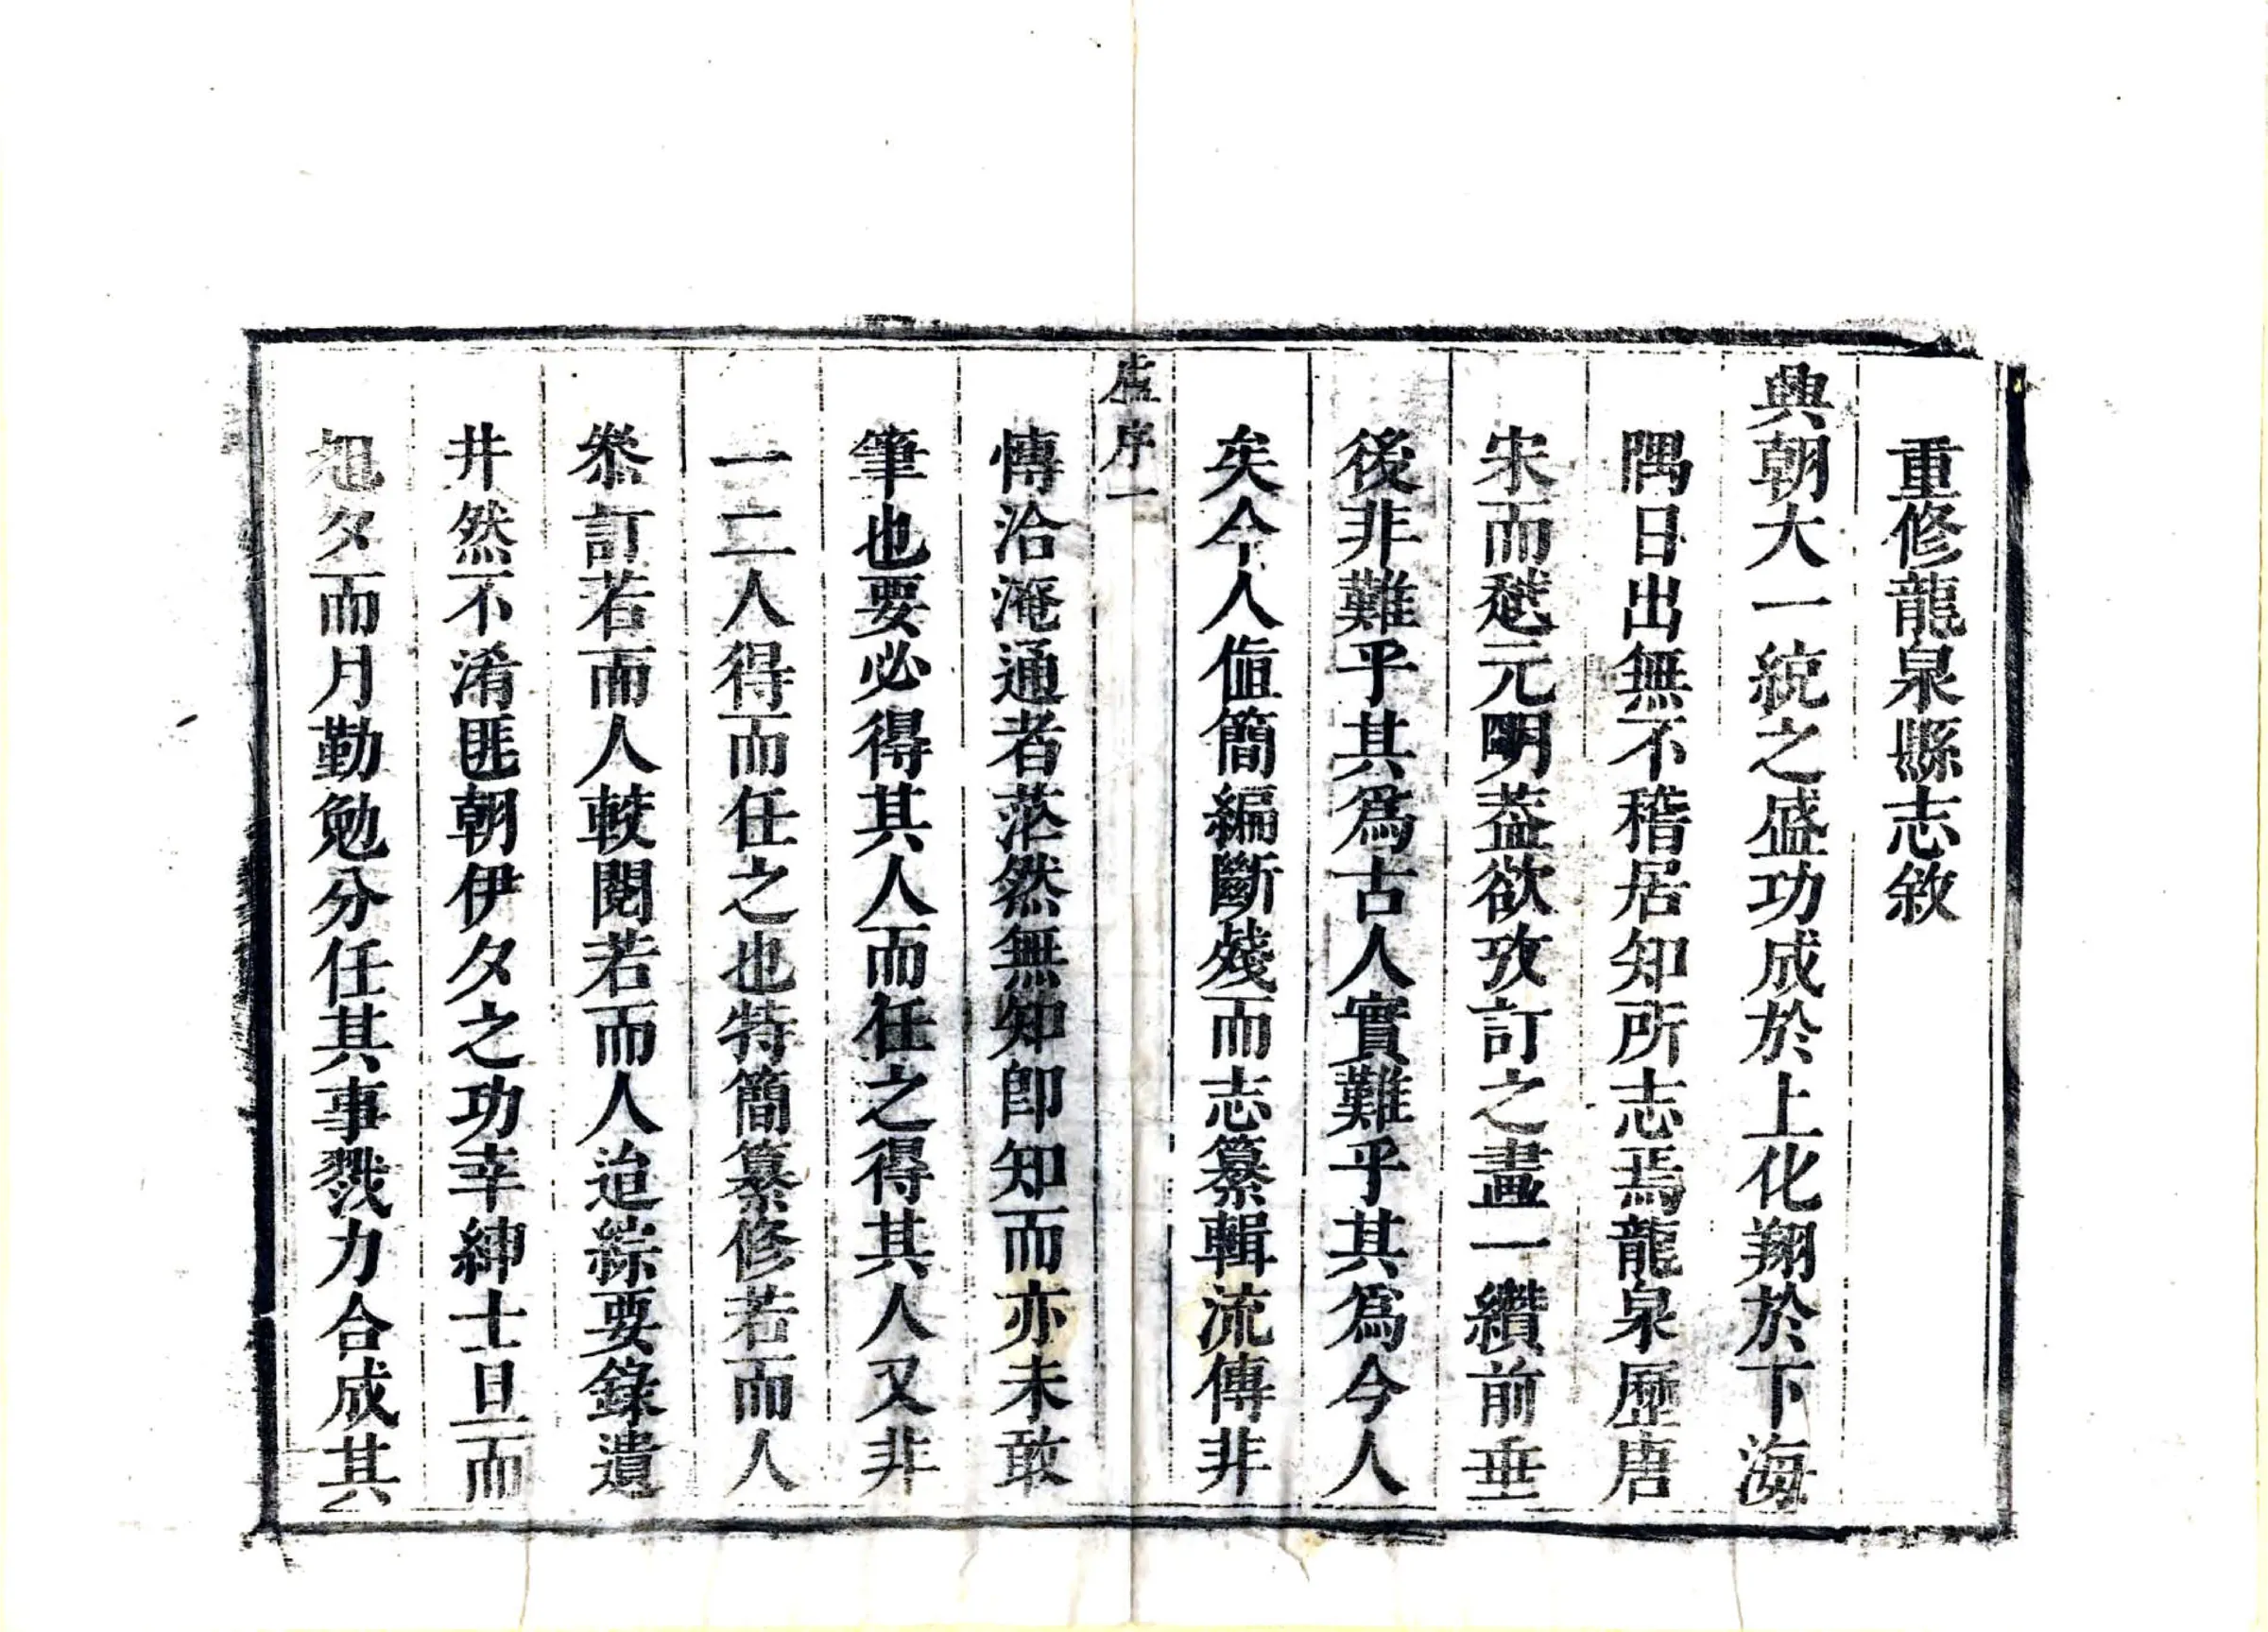 重修龍泉縣志敘
興朝大一統之盛功成於上化翔於下海
隅日出無不稽居知所志焉龍泉歷唐
宋而趆元明葢欲攷訂之畫一纘前垂
後非難乎其爲古人實難乎其爲今人
矣今人値簡編斷殘而志纂輯流傳非
盧序一
博洽淹通者茫然無知卽知而亦未敢
筆也要必得其人而任之得其人又非
一二人得而任之也特簡纂修若而人
叅訂若而人較閱若而人迨綜要錄遺
井然不淆匪朝伊夕之功幸紳士旦而
夕而月勤勉分任其事戮力合成其